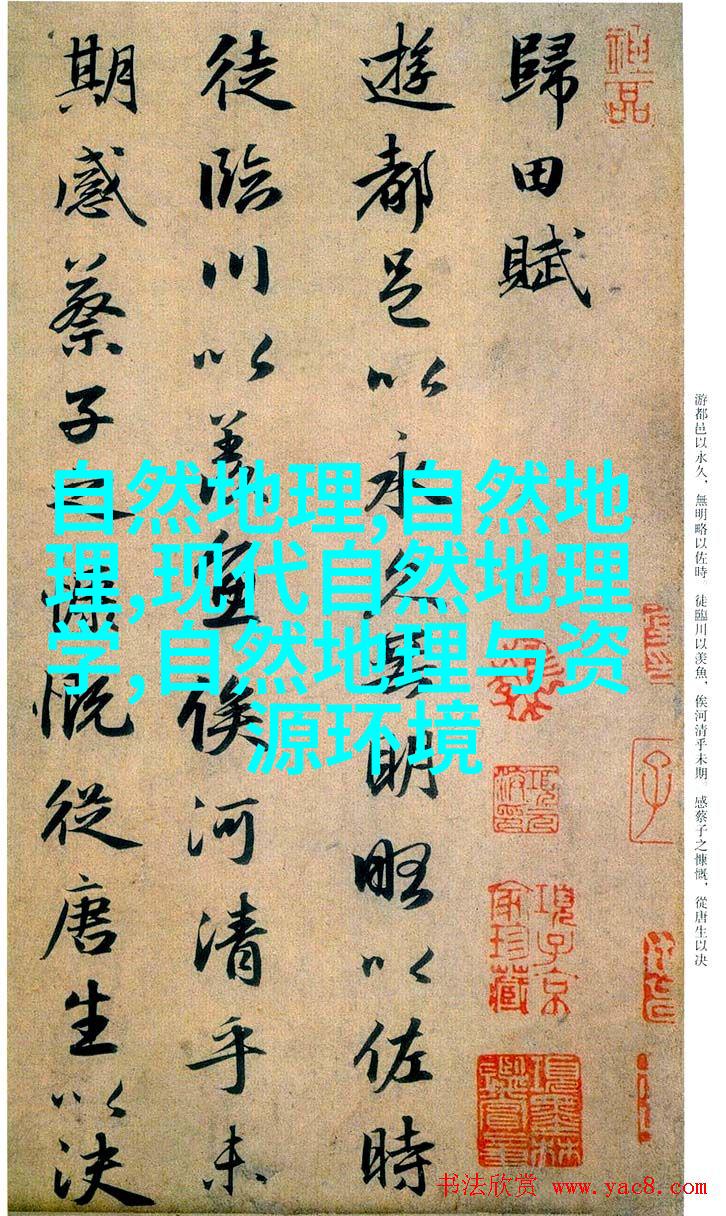 神品
歸田賦
遊都邑以永久無明略以佐時
徒臨川以羡魚俟河清乎未
期感蔡子之慷慨從唐生以決
項子京家珍藏
項墨林鑒賞章
自然地理,自然地
理,现代自然地理
学,自然地理与资
源环境
游都邑以永久，無明略以佐時。徒臨川以羡魚，俟河清乎未期。感蔡子之慷慨，從唐生以决
书法欣赏 www.yac8.com